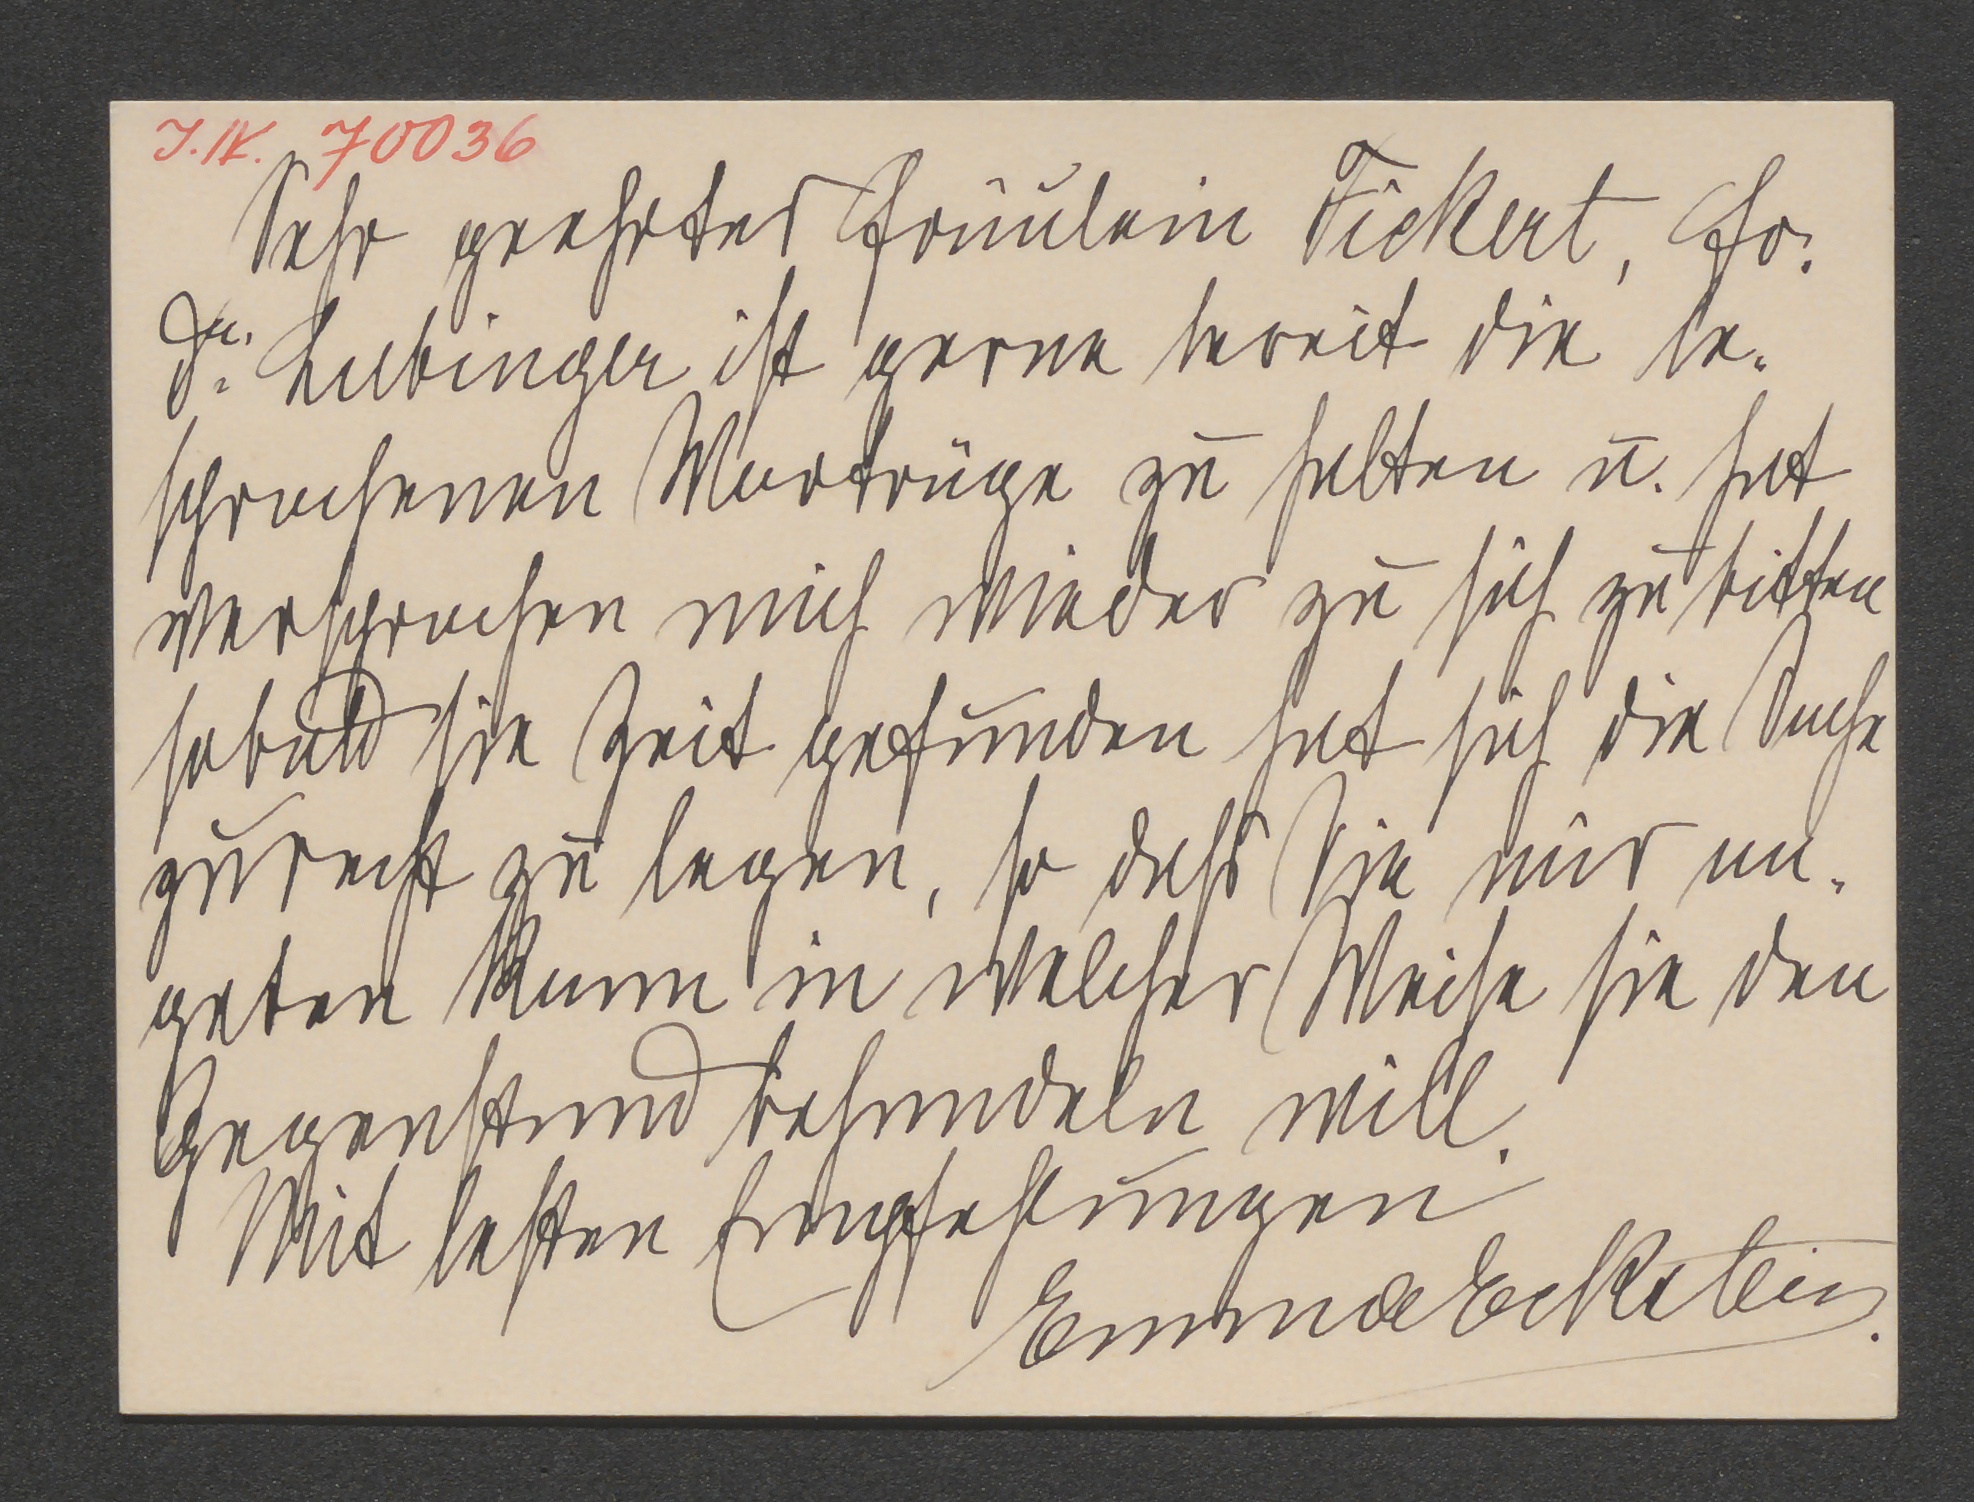 J.N. 70036
Sehr geehrtes Fräulein Fickert, Fr.
Dr. Lubinger ist gerne bereit die be-
sprochenen Vorträge zu halten u. hat
versprochen mich wieder zu sich zu bitten
sobald sie Zeit gefunden hat sich die Sache
zurecht zu legen, so daß Sie mir an-
geben kann in welcher Weise sie den
Gegenstand behandeln will.
Mit besten Empfehlungen
Emma Eckstein.